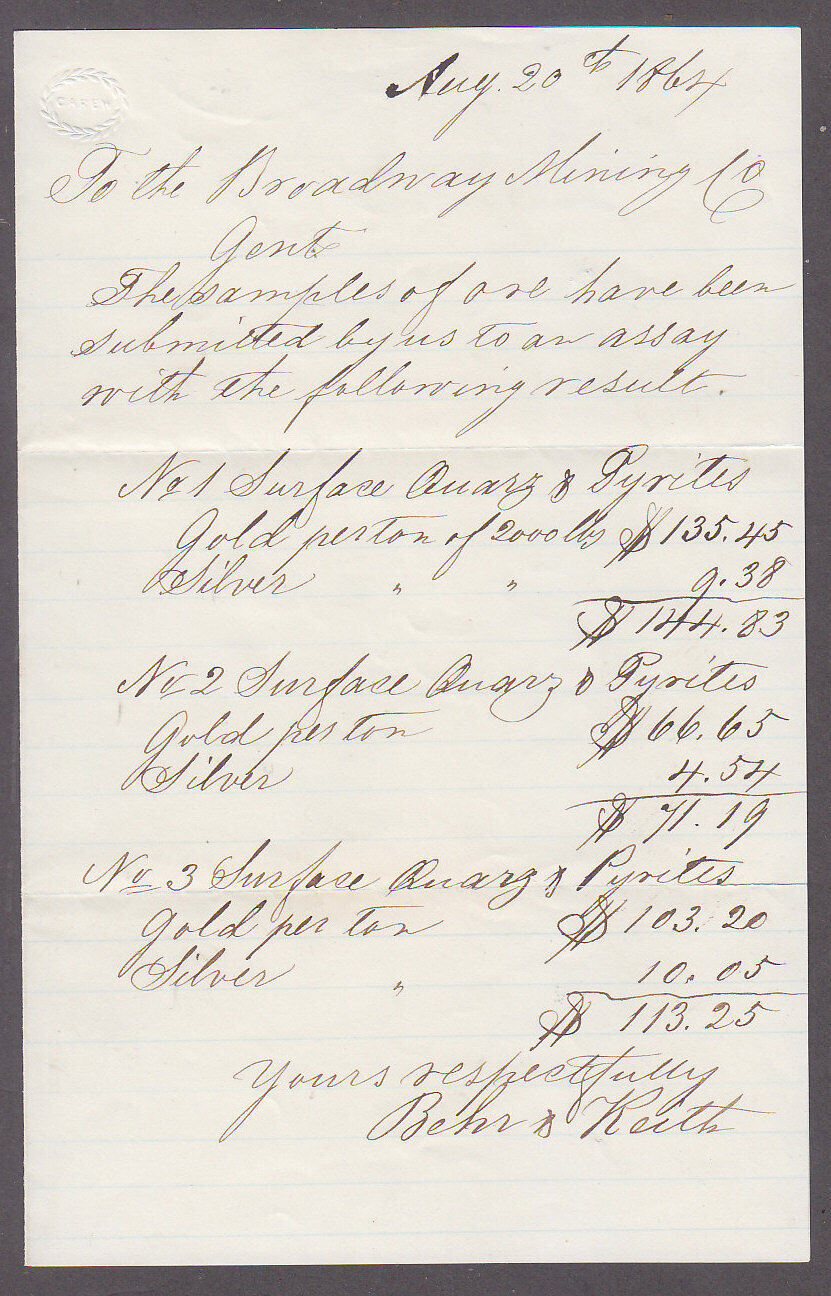 CAREW
Aug. 20th 1864
To the Broadway Mining Co
Gents
The samples of ore have been
submitted by us to an assay
with the following result.
No 1 Surface Quarz & Pyrites
Gold per ton of 2000 lbs $135.45
Silver " " 9.38
$144.83
No 2 Surface Quarz & Pyrites
Gold per ton $66.65
Silver 4.54
$71.19
No 3 Surface Quarz & Pyrites
Gold per ton $103.20
Silver " 10.05
$113.25
Yours respectfully
Behr & Keith